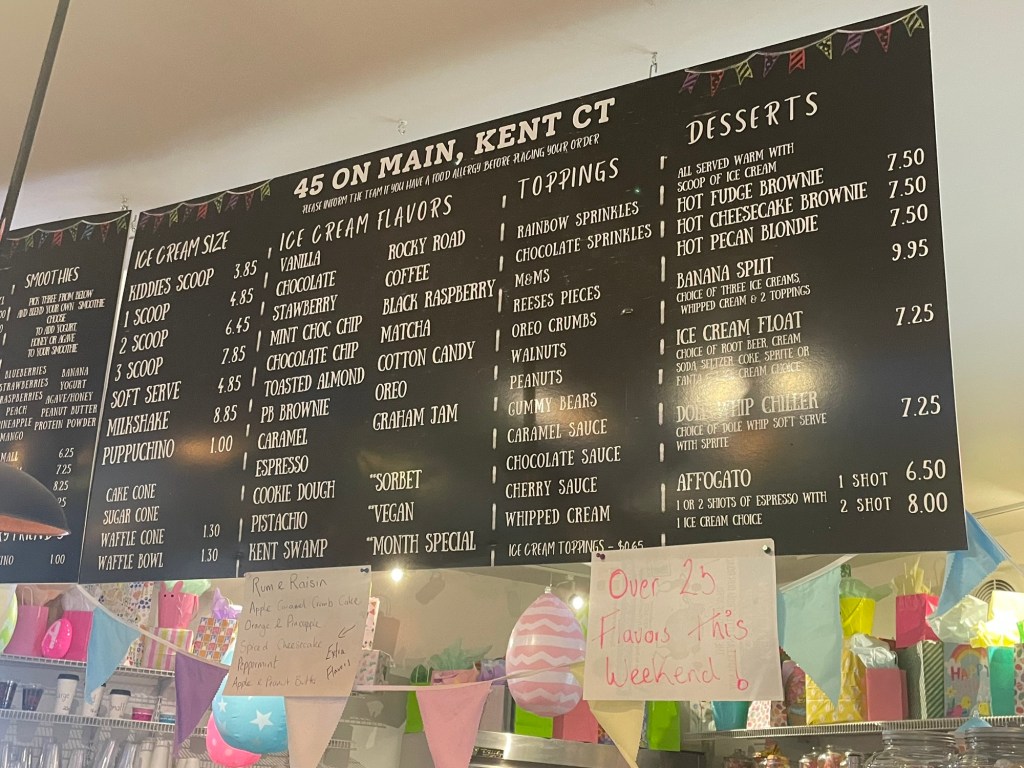 45 ON MAIN, KENT CT
PLEASE INFORM THE TEAM IF YOU HAVE A FOOD ALLERGY BEFORE PLACING YOUR ORDER
SMOOTHIES
PICK THREE FROM BELOW
AND BLEND YOUR OWN SMOOTHIE
CHOOSE
TO ADD YOGURT
HONEY OR AGAVE
TO YOUR SMOOTHIE
BLUEBERRIES BANANA
STRAWBERRIES YOGURT
RASPBERRIES AGAVE/HONEY
PEACH PEANUT BUTTER
PINEAPPLE PROTEIN POWDER
MANGO
6.25
7.25
8.25
1.00
ICE CREAM SIZE
KIDDIES SCOOP 3.85
1 SCOOP 4.85
2 SCOOP 6.45
3 SCOOP 7.85
SOFT SERVE 4.85
MILKSHAKE 8.85
PUPPUCHINO 1.00
CAKE CONE
SUGAR CONE
WAFFLE CONE 1.30
WAFFLE BOWL 1.30
ICE CREAM FLAVORS
VANILLA
CHOCOLATE
STAWBERRY
MINT CHOC CHIP
CHOCOLATE CHIP
TOASTED ALMOND
PB BROWNIE
CARAMEL
ESPRESSO
COOKIE DOUGH
PISTACHIO
KENT SWAMP
ROCKY ROAD
COFFEE
BLACK RASPBERRY
MATCHA
COTTON CANDY
OREO
GRAHAM JAM
**SORBET
**VEGAN
**MONTH SPECIAL
TOPPINGS
RAINBOW SPRINKLES
CHOCOLATE SPRINKLES
M&MS
REESES PIECES
OREO CRUMBS
WALNUTS
PEANUTS
GUMMY BEARS
CARAMEL SAUCE
CHOCOLATE SAUCE
CHERRY SAUCE
WHIPPED CREAM
ICE CREAM TOPPINGS - $0.65
DESSERTS
ALL SERVED WARM WITH
SCOOP OF ICE CREAM
HOT FUDGE BROWNIE 7.50
HOT CHEESECAKE BROWNIE 7.50
HOT PECAN BLONDIE 7.50
BANANA SPLIT 9.95
CHOICE OF THREE ICE CREAMS,
WHIPPED CREAM & 2 TOPPINGS
ICE CREAM FLOAT 7.25
CHOICE OF ROOT BEER, CREAM
SODA, SELTZER, COKE, SPRITE OR
FANTA ICE CREAM CHOICE
DOLE WHIP CHILLER 7.25
CHOICE OF DOLE WHIP SOFT SERVE
WITH SPRITE
AFFOGATO 1 SHOT 6.50
1 OR 2 SHOTS OF ESPRESSO WITH 2 SHOT 8.00
1 ICE CREAM CHOICE
Rum & Raisin
Apple Caramel Crumb Cake
Orange & Pineapple
Spiced Cheesecake
Peppermint
Extra
Flavors
Over 25
Flavors this
Weekend !